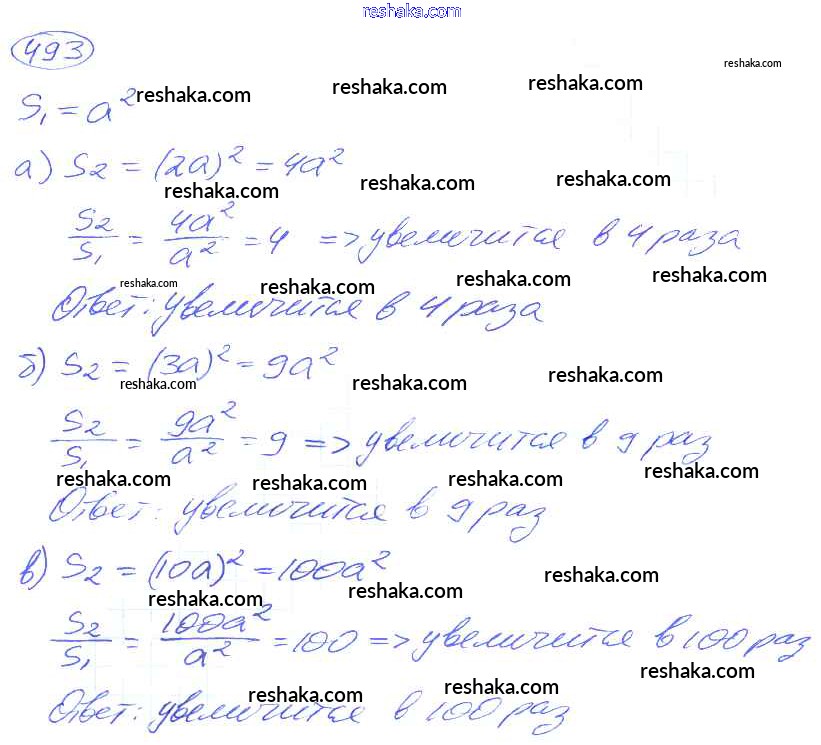 reshaka.com
493
reshaka.com
reshaka.com
reshaka.com
reshaka.com
S₁ = a²
а) S₂ = (2a)² = 4a²
reshaka.com
reshaka.com
reshaka.com
S₂/S₁ = 4a²/a² = 4 => увеличится в 4 раза
reshaka.com
reshaka.com
reshaka.com
reshaka.com
Ответ: увеличится в 4 раза
б) S₂ = (3a)² = 9a²
reshaka.com
reshaka.com
reshaka.com
S₂/S₁ = 9a²/a² = 9 => увеличится в 9 раз
reshaka.com
reshaka.com
reshaka.com
reshaka.com
Ответ: увеличится в 9 раз
в) S₂ = (10a)² = 100a²
reshaka.com
reshaka.com
reshaka.com
S₂/S₁ = 100a²/a² = 100 => увеличится в 100 раз
reshaka.com
reshaka.com
reshaka.com
Ответ: увеличится в 100 раз